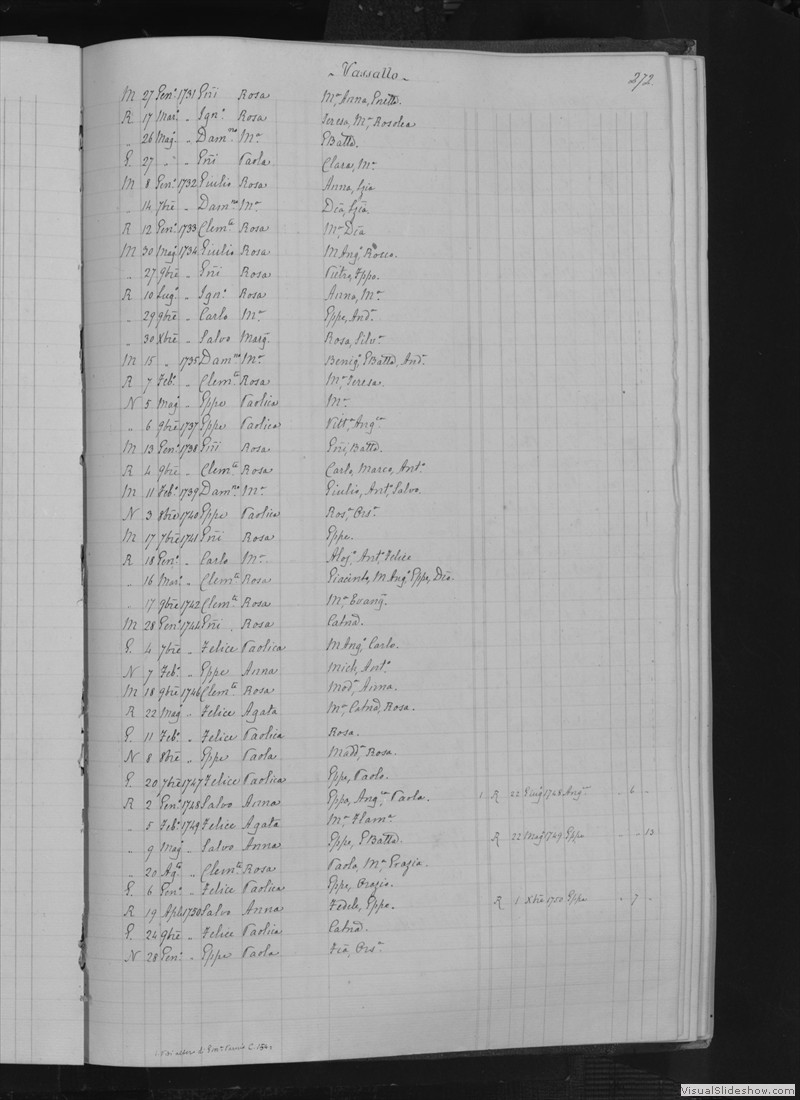 - Vassallo -
272
M 27 Gen.º 1731 Gñi Rosa Mª Anna, Gnetta.
R 17 Mar.º " Ign.º Rosa Teresa, Mª Rosolea
" 26 Mag.º " Dam.no Mª GBatta.
G. 27 " " Gñi Paola Clara, Mª
M 8 Gen.º 1732 Giulio Rosa Anna,
" 14 7bre " Dam.no Mª
R 12 Gen.º 1733 Clem.te Rosa Mª
M 30 Mag.º 1734 Giulio Rosa M Ang.ª Rosea.
" 27 9bre " Gñi Rosa Pietro, Gppa.
R 10 Lug.º " Ign.º Rosa Anna, Mª
" 29 9bre " Carlo Mª Gppe, And.ª
" 30 Xbre " Salvo Marg.ª Rosa, Silv.ª
M 15 " 1735 Dam.no Mª Benig.º, GBatta, And.ª
R 7 Feb.º " Clem.te Rosa Mª Teresa.
N 5 Mag.º " Gppe Paolica Mª
" 6 9bre 1737 Gppe Paolica Vitt.ª Ang.ca
M 13 Gen.º 1738 Gñi Rosa Gñi, Batta.
R 4 9bre " Clem.te Rosa Carlo, Marco, Ant.º
M 11 Feb.º 1739 Dam.no Mª Giulio, Ant.º, Salvo.
N 3 8bre 1740 Gppe Paolica Ros.ª, Ors.ª
M 17 7bre 1741 Gñi Rosa Gppe.
R 18 Gen.º " Carlo Mª Aloj.º Ant.º, Felice
" 16 Mar.º " Clem.te Rosa Giacinto, M Ang.º, Gppe,
" 17 9bre 1742 Clem.te Rosa Mª Evang.ª
M 28 Gen.º 1744 Gñi Rosa Catnã.
G. 4 7bre " Felice Paolica M Ang.º, Carlo.
N 7 Feb.º " Gppe Anna Mich, Ant.º
M 18 9bre 1746 Clem.te Rosa Mod.ª, Anna.
R 22 Mag.º " Felice Agata Mª, Catnã, Rosa.
G. 11 Feb.º " Felice Paolica Rosa.
N 8 8bre " Gppe Paola Madd.ª, Rosa.
G. 20 7bre 1747 Felice Paolica Gppa, Paolo.
R 2 Gen.º 1748 Salvo Anna Gppa, Ang.ca, Paola. 1 R 22 Giug.º 1748 Ang.ca - 6 -
" 5 Feb.º 1749 Felice Agata Mª Flam.ª
" 9 Mag.º " Salvo Anna Gppe, GBatta. R 22 Mag.º 1749 Gppe - - 13
" 20 Ag.to " Clem.te Rosa Paola, Mª Grazia.
G. 6 Gen.º " Felice Paolica Gppa, Orazio.
R 19 Aple 1750 Salvo Anna Fedele, Gppa. R 1 Xbre 1750 Gppa - 7 -
G. 24 9bre " Felice Paolica Catnã.
N 28 Gen.º " Gppe Paola Ors.ª
VisualSlideshow.com